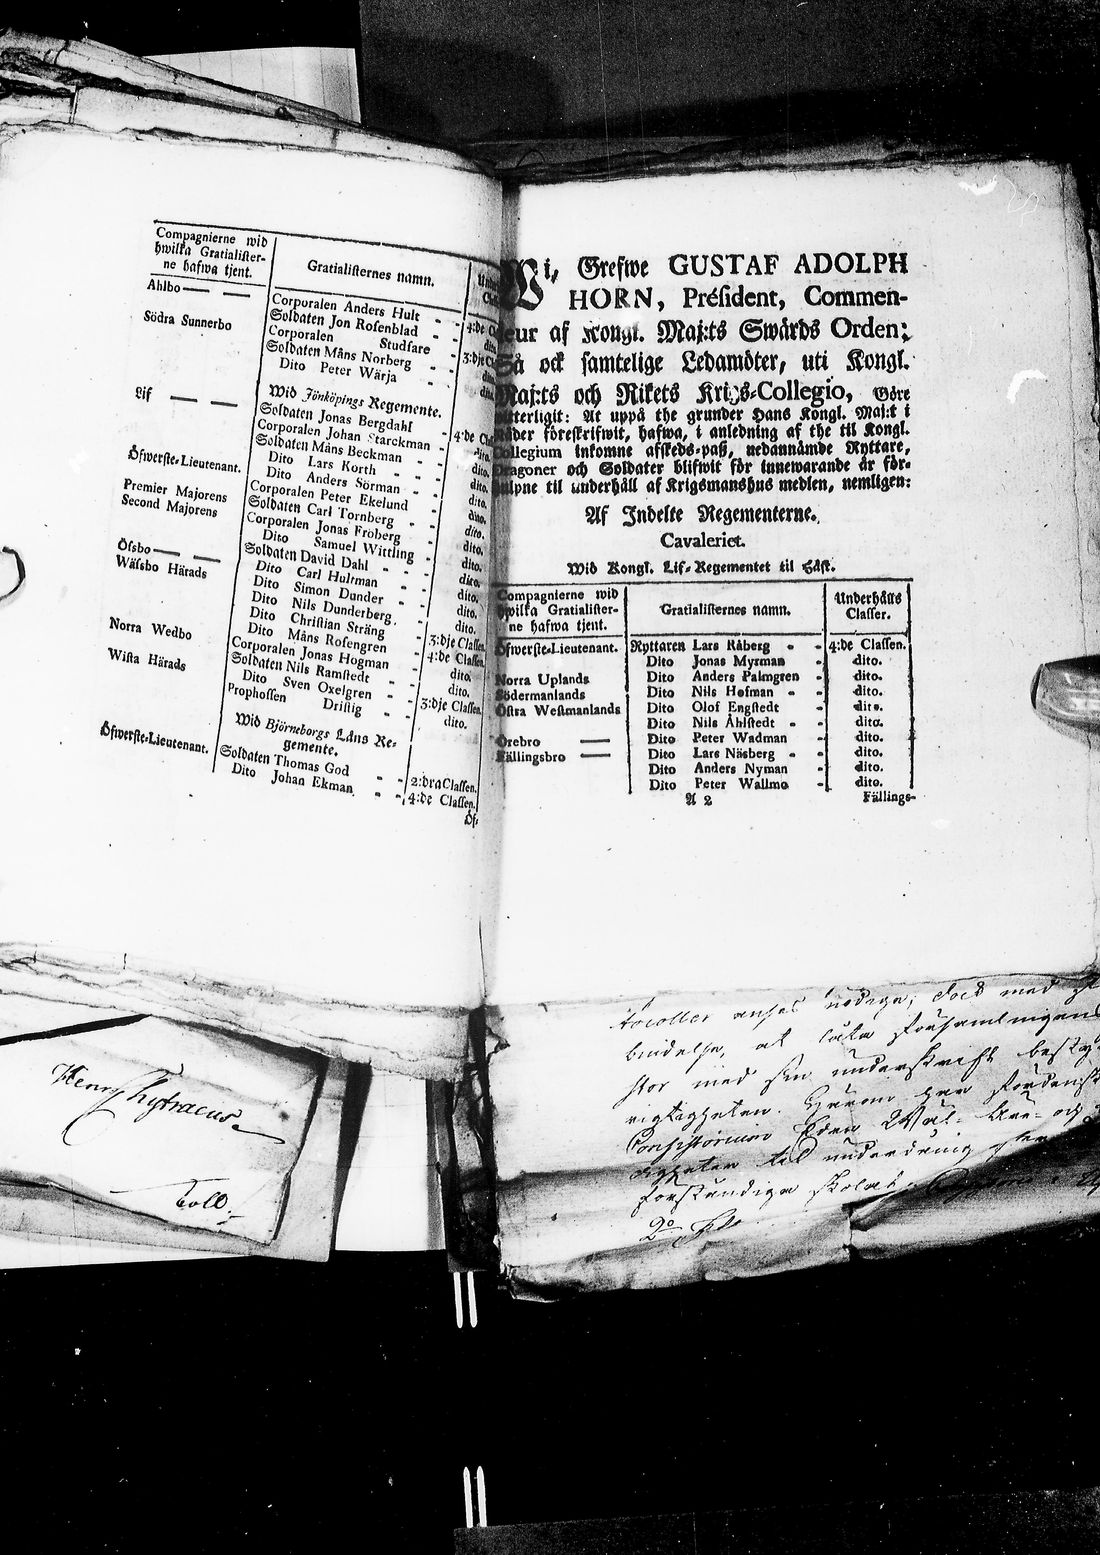 Compagnierne wid
hwilka Gratialister-
ne hafwa tjent.
Gratialisternes namn.
Ahlbo — —
Södra Sunnerbo
Lif — —
Öfwerste-Lieutenant.
Premier Majorens
Second Majorens
Öfsbo — —
Wässbo Härads
Norra Wedbo
Wista Härads
Öfwerste-Lieutenant.
Corporalen Anders Hult - - 4:de
Soldaten Jon Rosenblad - - dito.
Corporalen Studsare - 3:dje
Soldaten Måns Norberg - - dito.
Dito Peter Wärja - - dito.
Wid Jönköpings Regemente.
Soldaten Jonas Bergdahl - 4:de
Corporalen Johan Starckman - dito.
Soldaten Måns Beckman - - dito.
Dito Lars Korth - - dito.
Dito Anders Sörman - - dito.
Corporalen Peter Ekelund - dito.
Soldaten Carl Tornberg - - dito.
Corporalen Jonas Froberg - dito.
Dito Samuel Wittling - dito.
Soldaten David Dahl - - dito.
Dito Carl Hultman - dito.
Dito Simon Dunder - - dito.
Dito Nils Dunderberg - dito.
Dito Christian Sträng - dito.
Dito Måns Rosengren - 3:dje Classen.
Corporalen Jonas Hogman - 4:de Classen.
Soldaten Nils Ramstedt - - dito.
Dito Sven Oxelgren - - dito.
Prophossen Dristig - - 3:dje Classen.
dito.
Wid Björneborgs Läns Re-
gemente.
Soldaten Thomas God - - 2:dra Classen.
Dito Johan Ekman - - 4:de Classen.
Öf-
Wi, Grefwe GUSTAF ADOLPH
HORN, Président, Commen-
deur af Kongl. Maj:ts Swärds Orden;
Så ock samtelige Ledamöter, uti Kongl.
Maj:ts och Rikets Krigs-Collegio, Göre
witterligit: At uppå the grunder Hans Kongl. Maj:t i
Nåder föreskrifwit, hafwa, i anledning af the til Kongl.
Collegium inkomne afskeds-paß, nedannämde Ryttare,
Dragoner och Soldater blifwit för innewarande år för-
hulpne til underhåll af Krigsmanshus medlen, nemligen:
Af Indelte Regementerne.
Cavaleriet.
Wid Kongl. Lif-Regementet til Häst.
Compagnierne wid
hwilka Gratialister-
ne hafwa tjent.
Gratialisternes namn.
Underhålls
Classer.
Öfwerste-Lieutenant. Ryttaren Lars Råberg - - 4:de Classen.
Dito Jonas Myrman - dito.
Norra Uplands Dito Anders Palmgren - dito.
Södermanlands Dito Nils Hofman - - dito.
Östra Westmanlands Dito Olof Engstedt - dito.
Dito Nils Åhlstedt - - dito.
Örebro — Dito Peter Wadman - dito.
Fällingsbro — Dito Lars Näsberg - - dito.
Dito Anders Nyman - dito.
Dito Peter Wallmo - dito.
A 2 Fällings-
Toll.